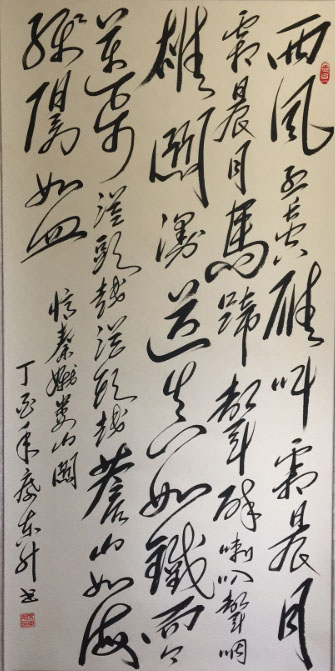 西风烈長空雁叫霜晨月
霜晨月馬蹄聲碎喇叭聲咽
雄關漫道真如鐵而今
邁步從頭越從頭越蒼山如海
殘陽如血
憶秦娥婁山關
丁酉年东升书